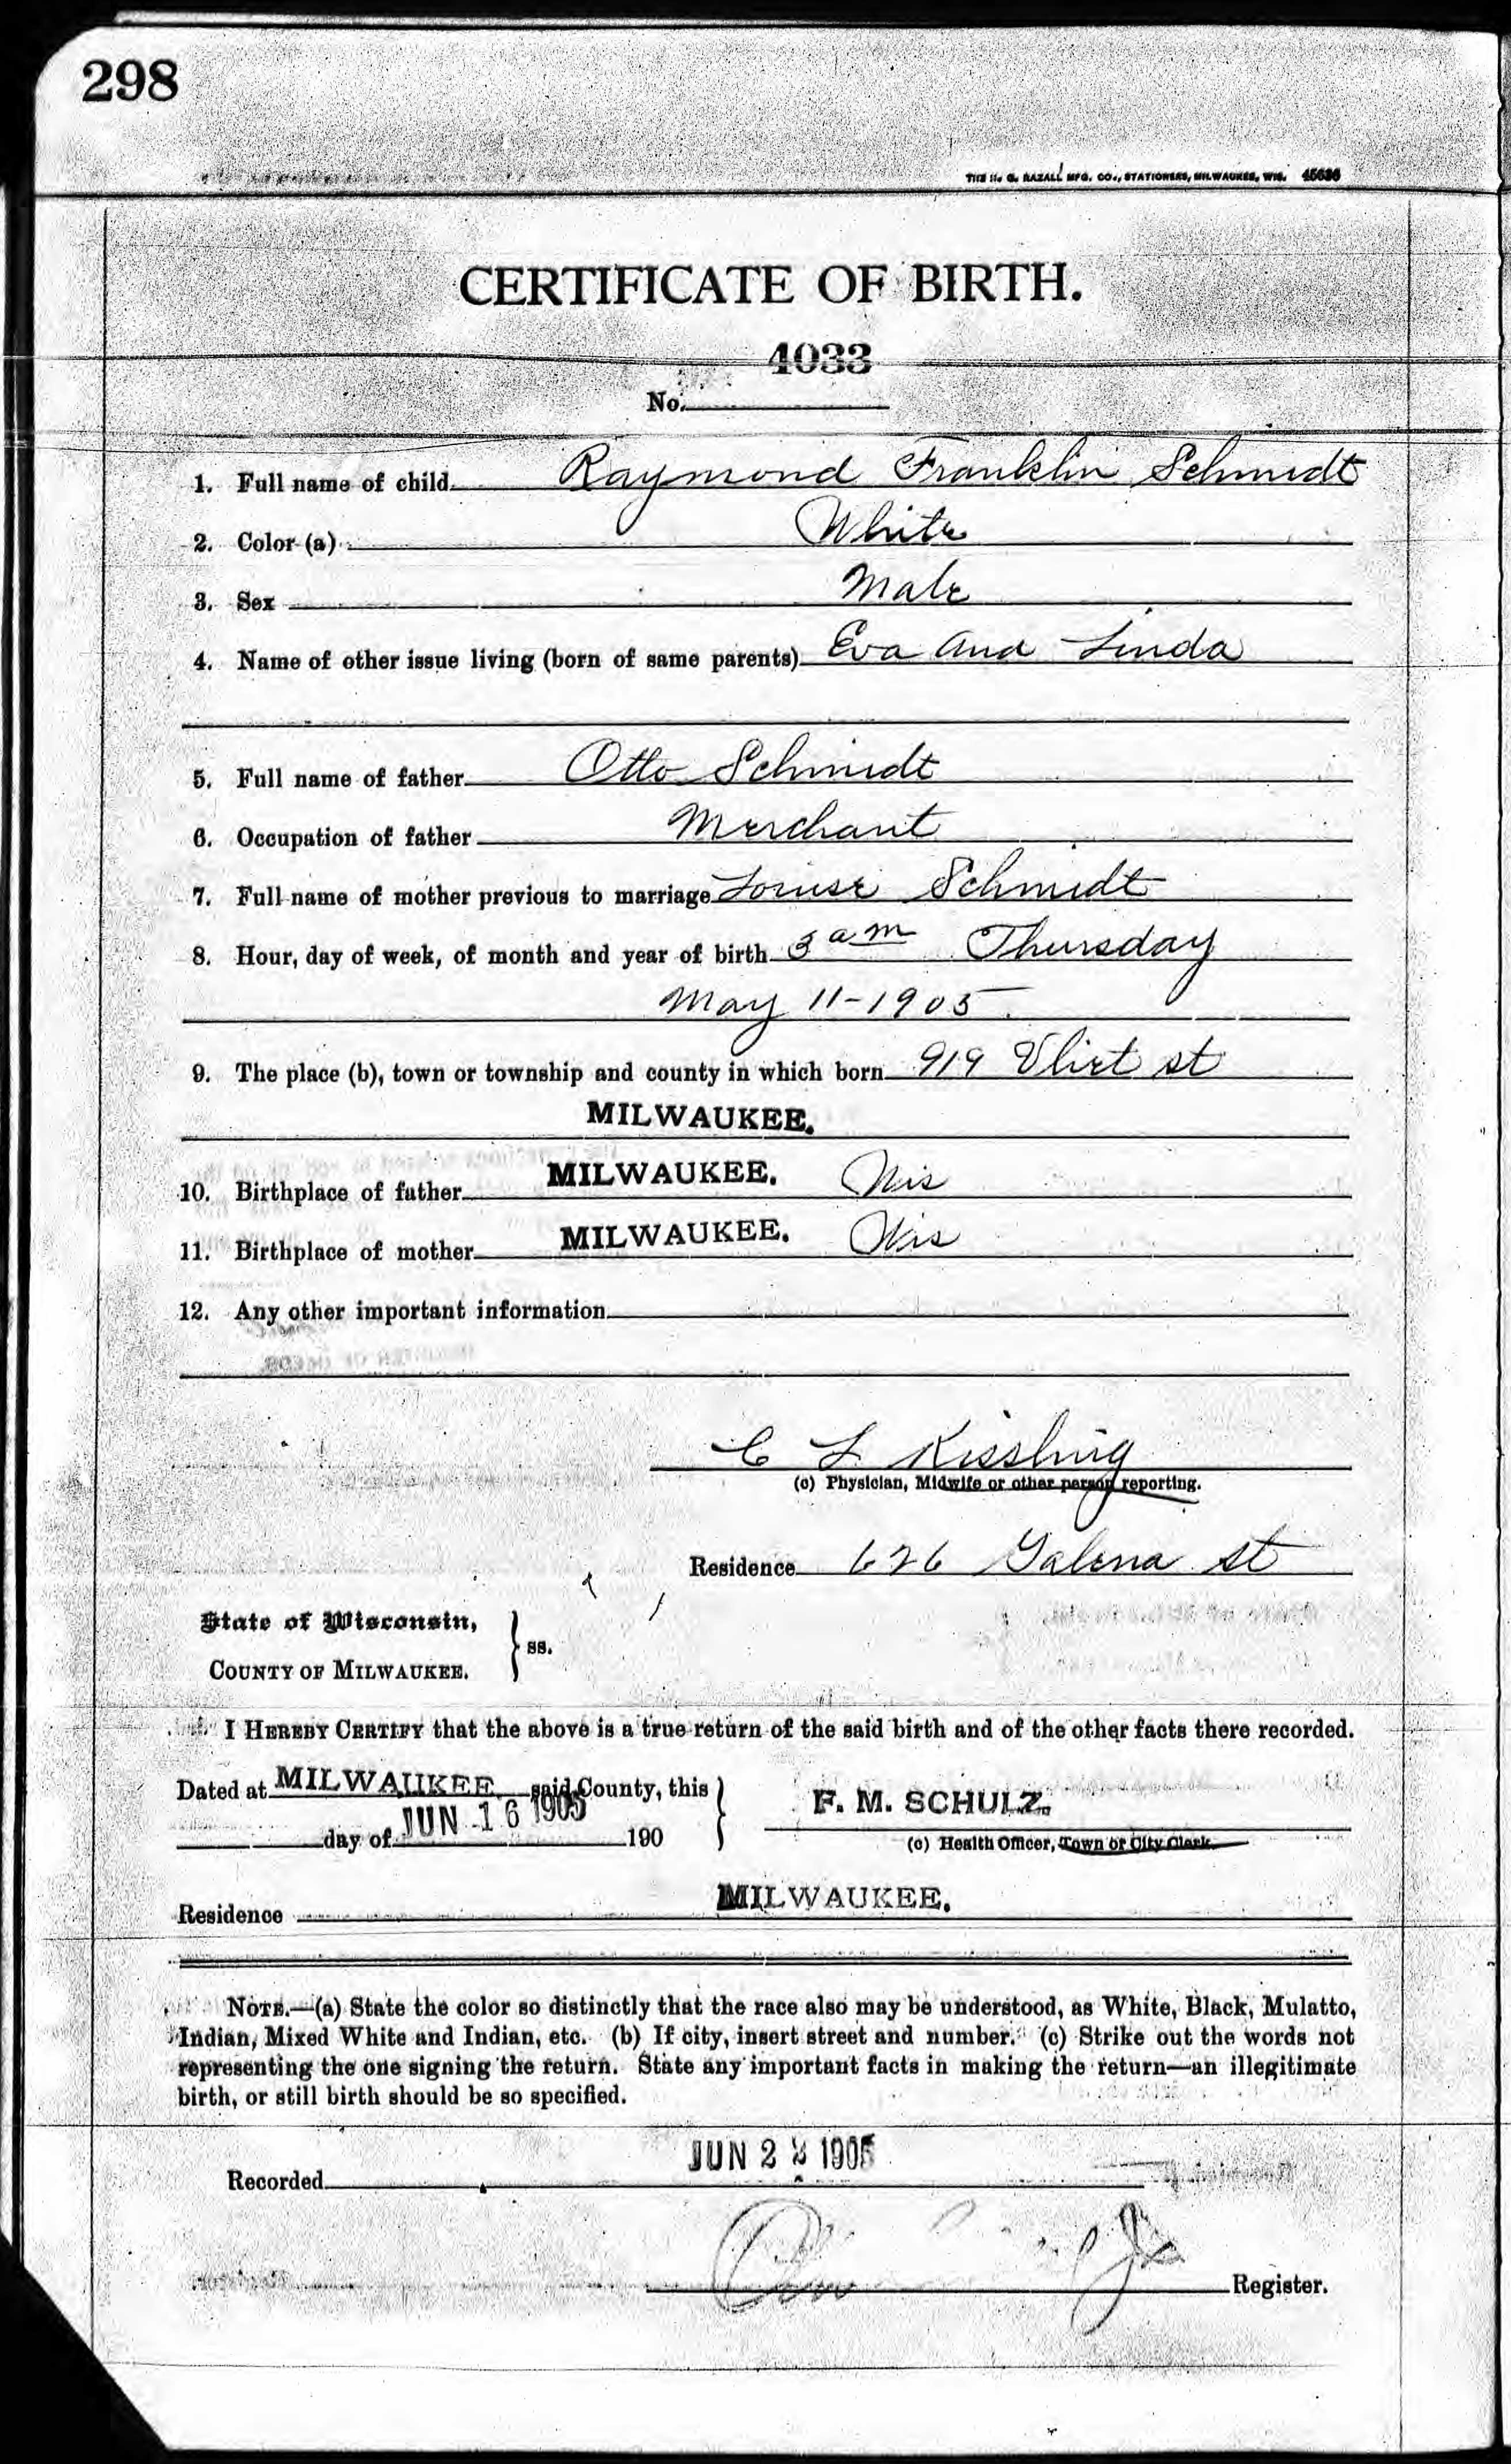 298
THE H. G. RAZALL MFG. CO., STATIONERS, MILWAUKEE, WIS. 45636
CERTIFICATE OF BIRTH.
4033
No.
1. Full name of child Raymond Franklin Schmidt
2. Color (a) White
3. Sex Male
4. Name of other issue living (born of same parents) Eva and Linda
5. Full name of father Otto Schmidt
6. Occupation of father Merchant
7. Full name of mother previous to marriage Louise Schmidt
8. Hour, day of week, of month and year of birth 3 am Thursday
May 11-1905
9. The place (b), town or township and county in which born 919 Vliet st
MILWAUKEE.
10. Birthplace of father MILWAUKEE. Wis
11. Birthplace of mother MILWAUKEE. Wis
12. Any other important information
C L Kissling
(c) Physician, Midwife or other person reporting.
Residence 626 Galena st
State of Wisconsin,
COUNTY OF MILWAUKEE. } ss.
I HEREBY CERTIFY that the above is a true return of the said birth and of the other facts there recorded.
Dated at MILWAUKEE said County, this
day of JUN 16 1905 190
F. M. SCHULZ.
(c) Health Officer, Town or City Clerk
Residence MILWAUKEE.
NOTE.—(a) State the color so distinctly that the race also may be understood, as White, Black, Mulatto,
Indian, Mixed White and Indian, etc. (b) If city, insert street and number. (c) Strike out the words not
representing the one signing the return. State any important facts in making the return—an illegitimate
birth, or still birth should be so specified.
Recorded JUN 2 1905
Register.